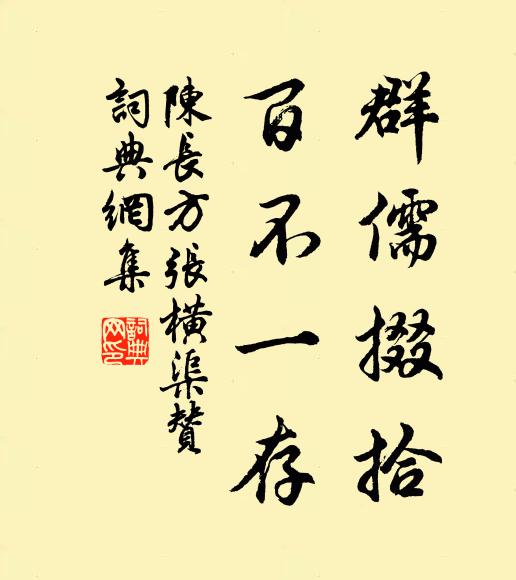 群儒掇拾
百不一存
陳長方張橫渠贊
詞典網集
詞典
网印